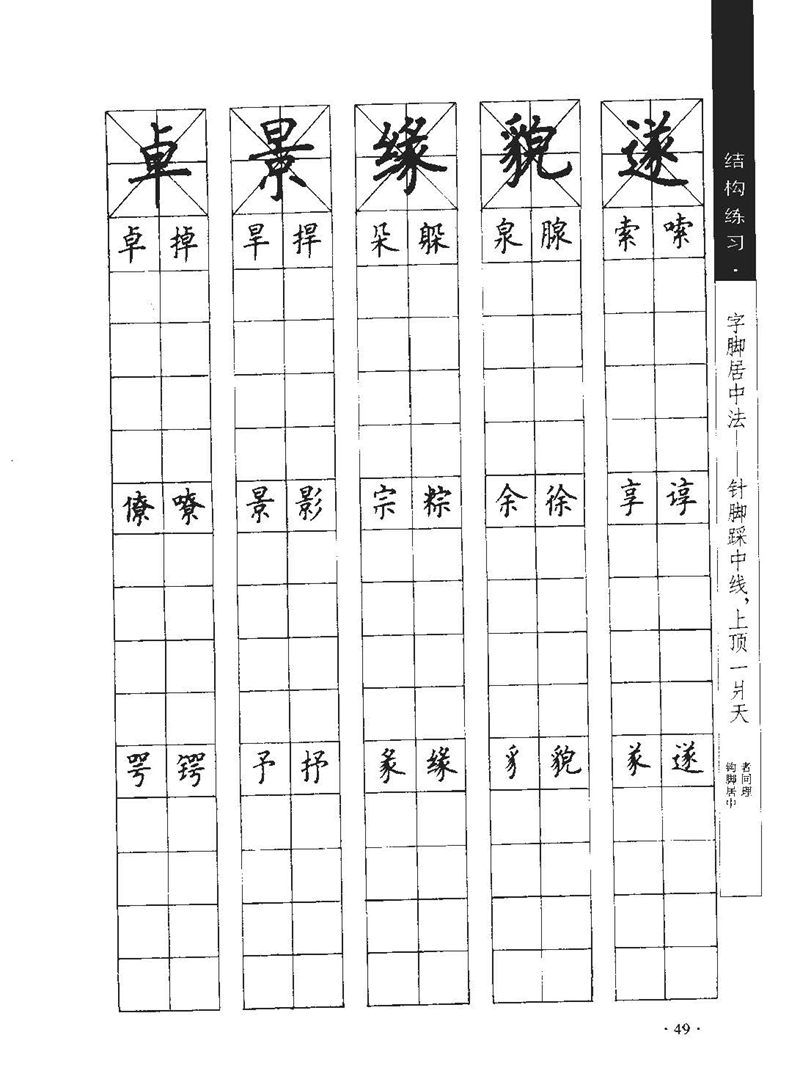 卓 景 缘 貌 遂
卓 掉 旱 捍 朵 躲 泉 腺 索 嗦
僚 嘹 景 影 宗 粽 余 徐 享 谆
咢 锷 予 抒 彖 缘 豸 貌 㒸 遂
结构练习·
字脚居中法——针脚踩中线，上顶一爿天
钩脚居中
者同理
·49·